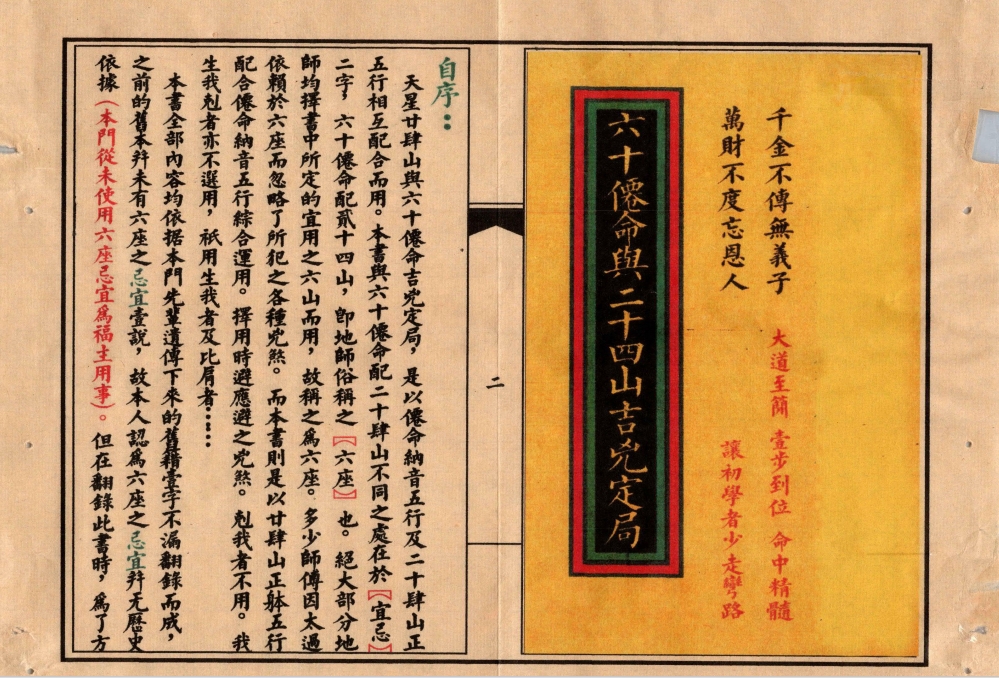 千金不傳無義子
萬財不度忘恩人
大道至簡 壹步到位 命中精髓
讓初學者少走彎路
六十僊命與二十四山吉兇定局
二
自序：
天星廿肆山與六十僊命吉兇定局，是以僊命納音五行及二十肆山正
五行相互配合而用。本書與六十僊命配二十肆山不同之處在於【宜忌】
二字，六十僊命配貳十四山，卽地師俗稱之【六座】也。絕大部分地
師均擇書中所定的宜用之六山而用，故稱之爲六座。多少師傅因太過
依賴於六座而忽略了所犯之各種兇煞。而本書則是以廿肆山正躰五行
配合僊命納音五行綜合運用。擇用時避應避之兇煞。剋我者不用。我
生我剋者亦不選用，祇用生我者及比肩者……
本書全部內容均依据本門先輩遺傳下來的舊籍壹字不漏翻錄而成，
之前的舊本幷未有六座之忌宜壹説，故本人認爲六座之忌宜幷无歷史
依據（本門從未使用六座忌宜爲福主用事）。但在翻錄此書時，爲了方